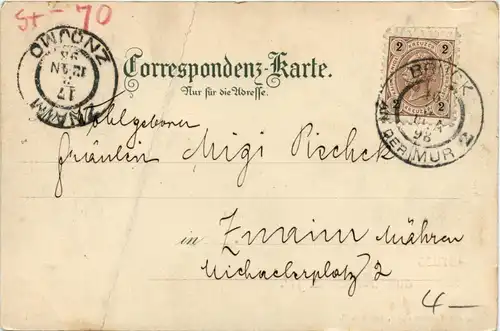 St- 70
ZNOJMO
ZNAIM
17
Correspondenz-Karte.
Nur für die Adresse.
2 KREUZER 2
2 2
BRUCK
AN DER MUR 2
98
Wohlgeboren
Fräulein Migi Pischek
in Znaim Mähren
Michaelerplatz 2
4-